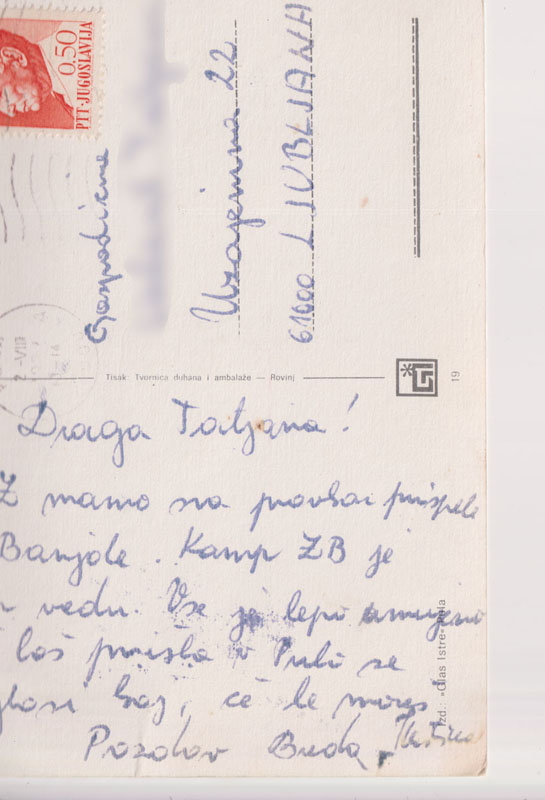 0.50
PTT-JUGOSLAVIJA
Gospodična
Uzajemna 22
61000 LJUBLJANA
Tisak: Tvornica duhana i ambalaže — Rovinj
19
Draga Tatjana!
Z mamo sva prispele
Banjole. Kamp ZB je
v redu. Vse je lepo urejeno
boš prišla v Pulo se
glasi kaj, če le moreš
Pozdrav Breda
Izd.: »Glas Istre« Pula